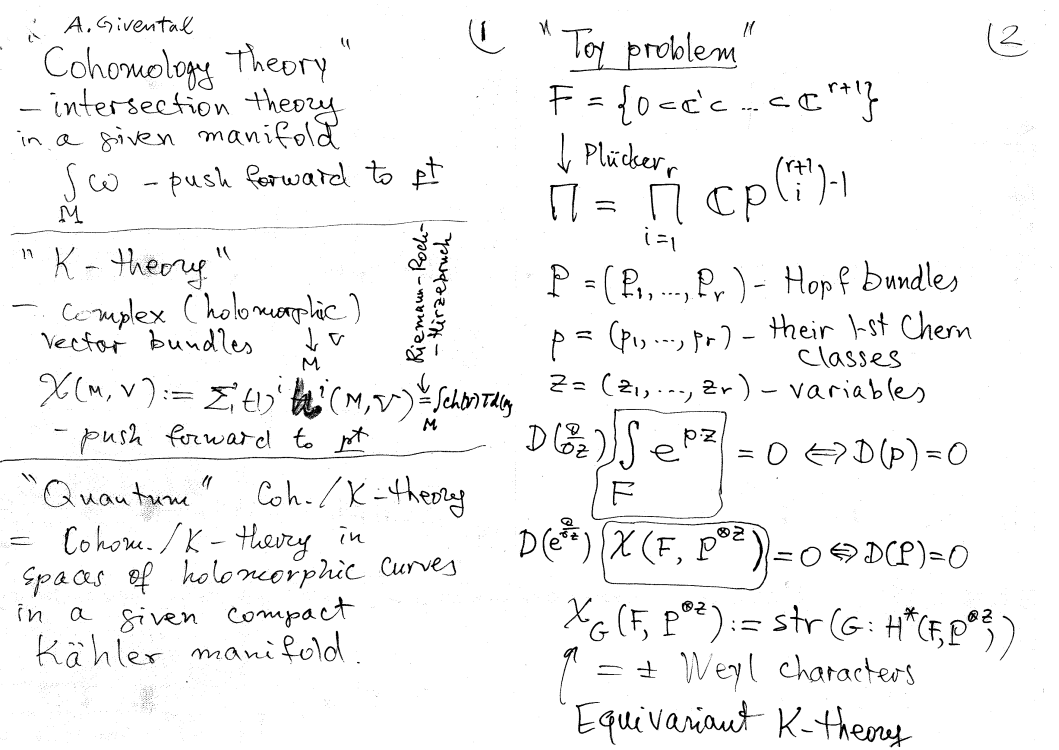 A. Givental
(1
"Cohomology Theory"
– intersection theory
in a given manifold
∫_M ω – push forward to pt
"K-theory"
– complex (holomorphic)
vector bundles ↓ V
M
Riemann-Roch-
-Hirzebruch
χ(M,V) := Σ(-1)^i h^i(M,V) = ∫_M ch(V)Td(M)
– push forward to pt
"Quantum" Coh./K-theory
= Cohom./K-theory in
spaces of holomorphic curves
in a given compact
Kähler manifold.
(2
"Toy problem"
F = {0 ⊂ ℂ¹ ⊂ ... ⊂ ℂ^{r+1}}
↓ Plücker
Π = ∏_{i=1}^{r} ℂP^{\binom{r+1}{i}-1}
P = (P₁, ..., P_r) – Hopf bundles
p = (p₁, ..., p_r) – their 1-st Chern
classes
z = (z₁, ..., z_r) – variables
D(∂/∂z) ∫_F e^{p·z} = 0 ⇔ D(p) = 0
D(e^{∂/∂z}) χ(F, P^{⊗z}) = 0 ⇔ D(P) = 0
χ_G(F, P^{⊗z}) := str(G: H*(F, P^{⊗z}))
↑ = ± Weyl characters
Equivariant K-theory